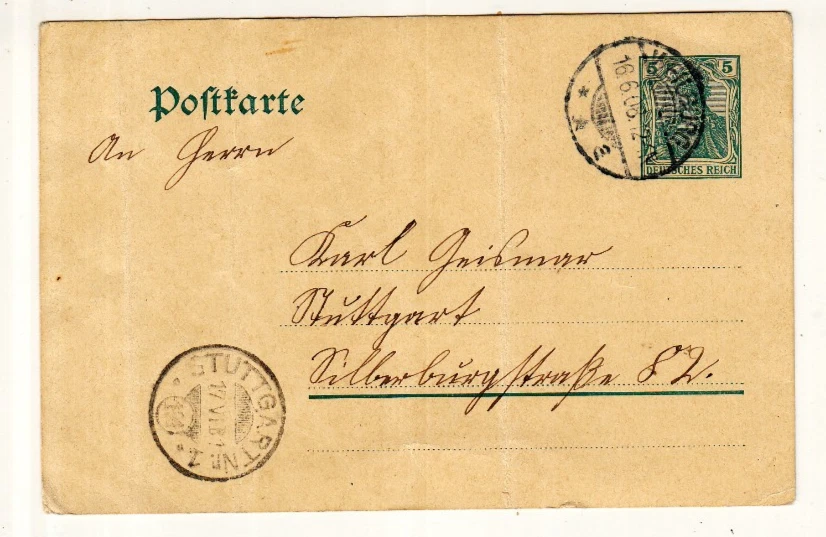 Postkarte
5 5
DEUTSCHES REICH
16.6.08.12
An Herrn
Karl Geismar
Stuttgart
Silberburgstraße 82.
STUTTGART Nº 1
17 VI.